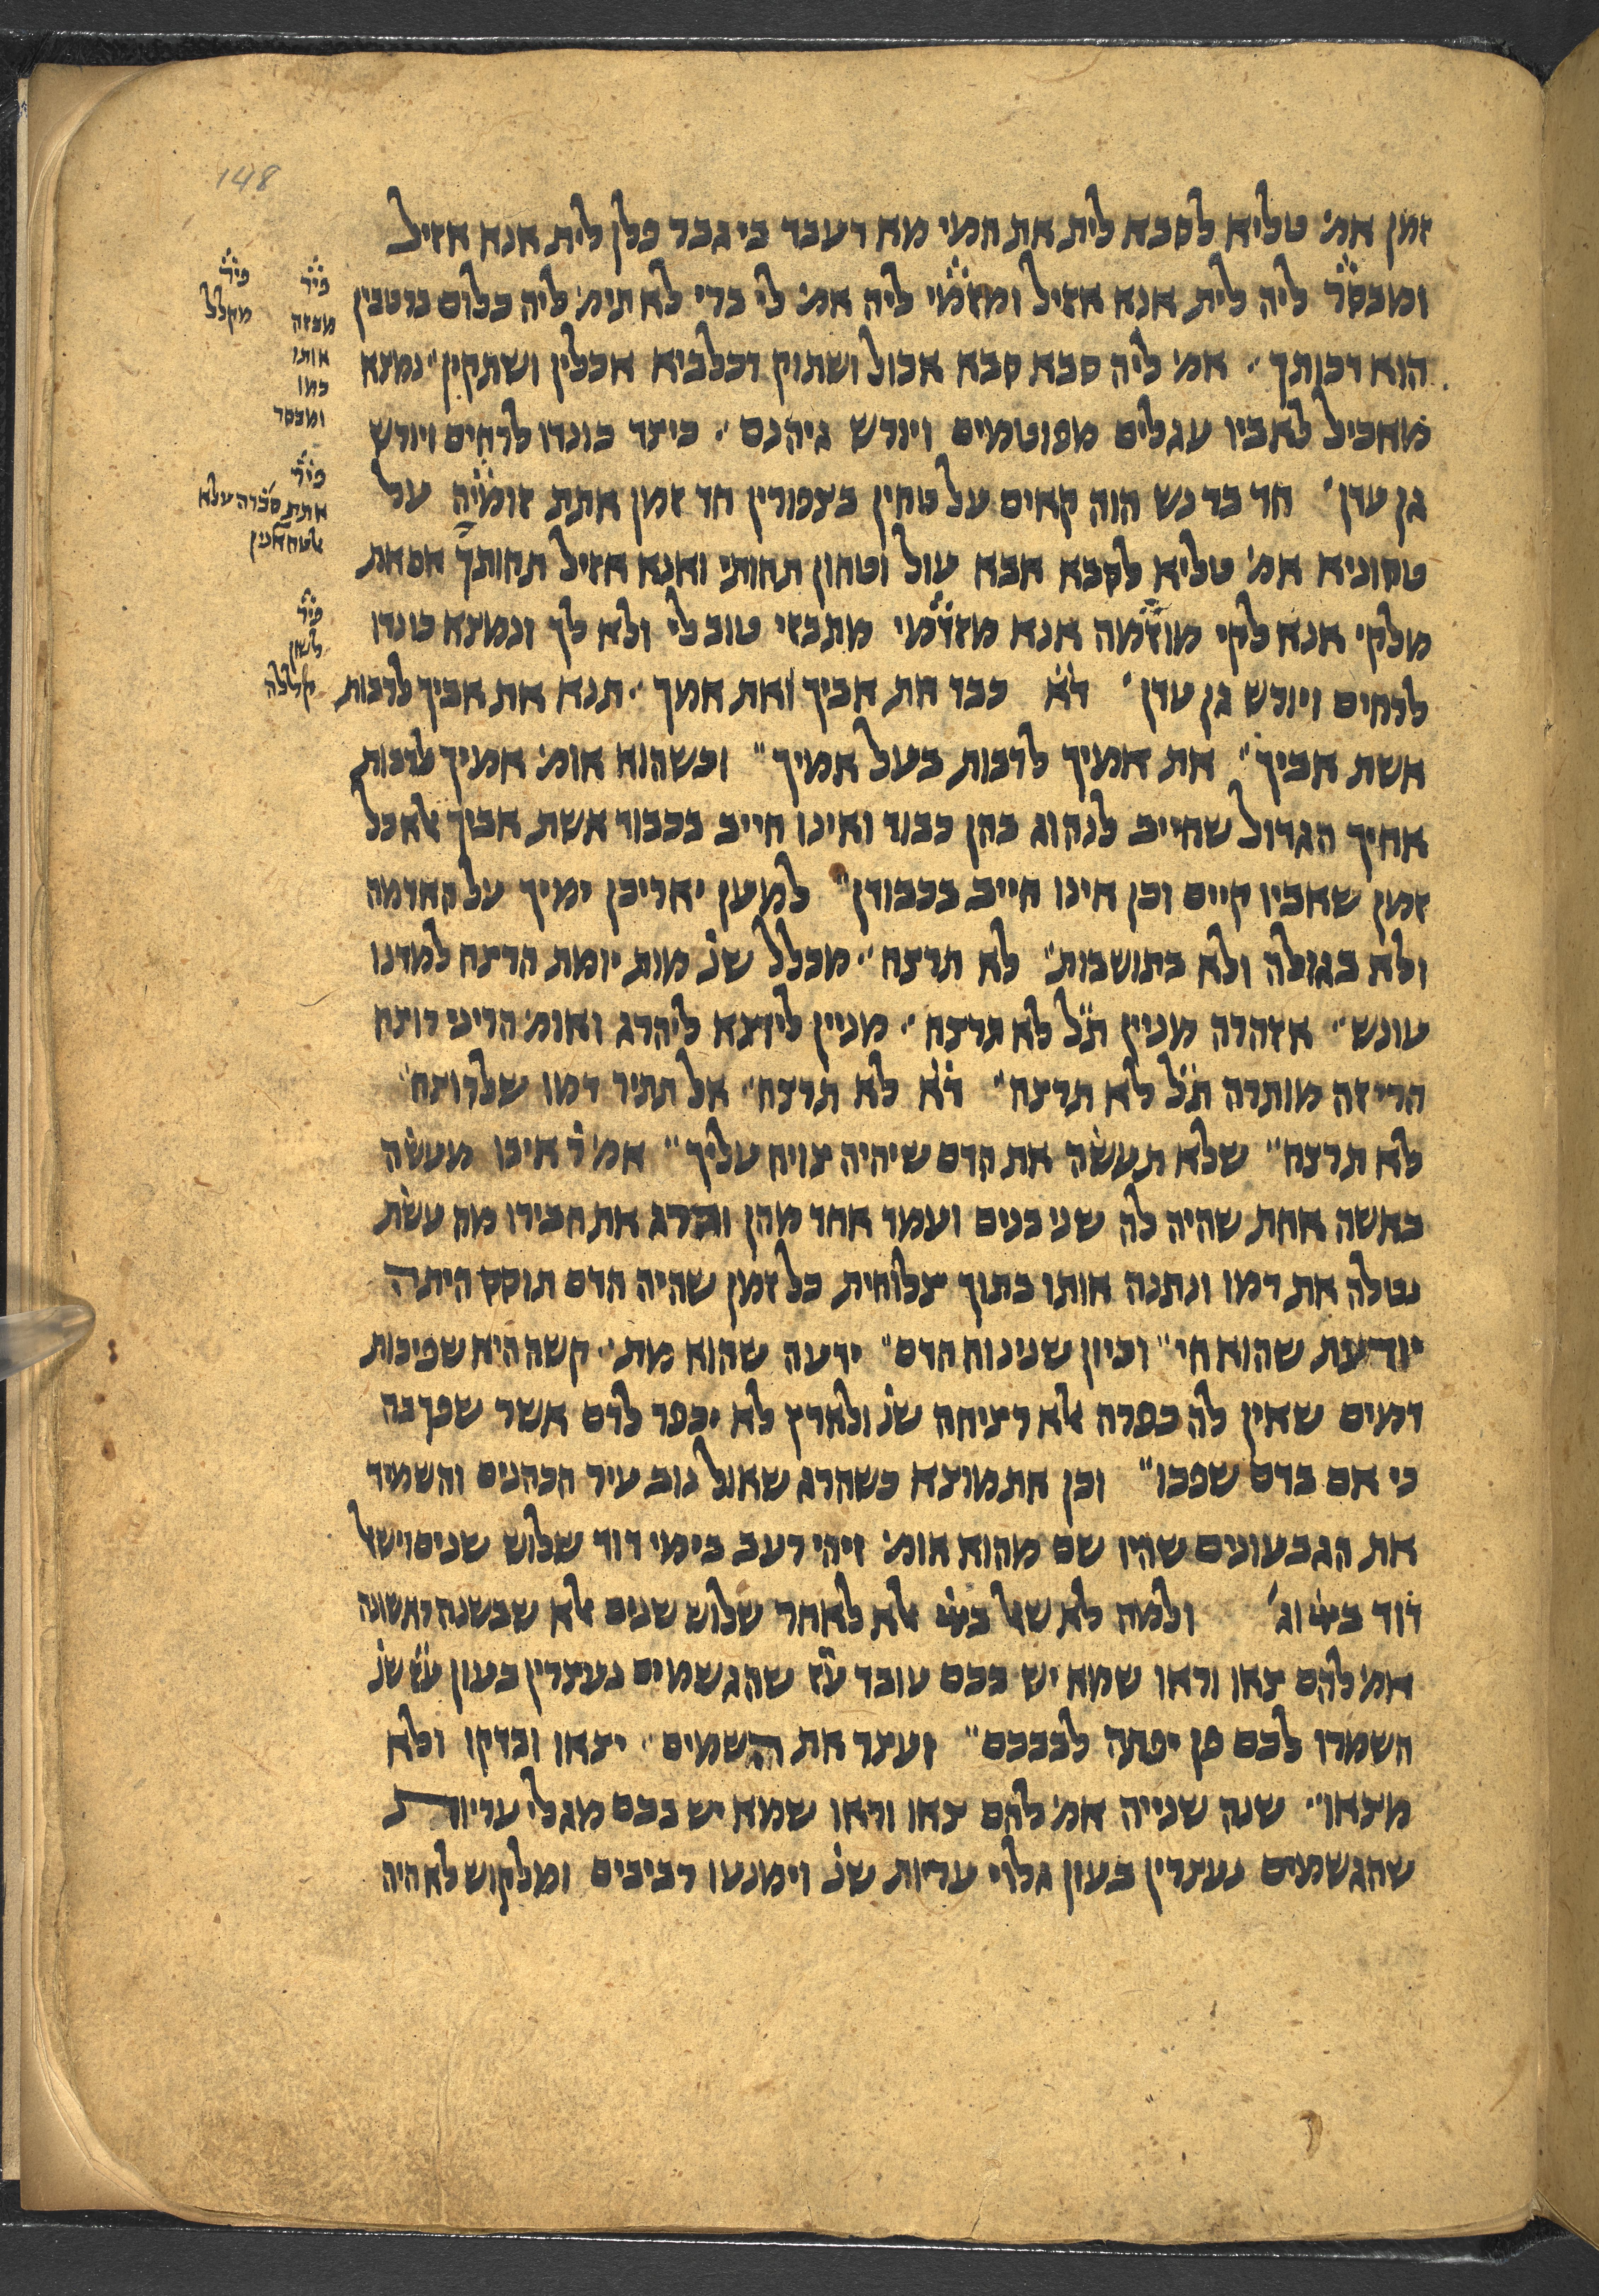 148
זמן אמ׳ טליא לסבא לית את חמי מא דעבד בי גבר פלן לית אנא אזיל
ומבסר ליה לית אנא אזיל ומזמי ליה אמ׳ לי ברי לא תימ׳ ליה כלום ברטבין
הוא רבותך״ אמ׳ ליה סבא סבא אכול ושתוק דכלביא אכלין ושתקין״ נמצא
מאכיל לאביו עגלים מפוטמים ויורש גיהנם״ כיצד כונדו לרחים ויורש
גן עדן׳ חד בר נש הוה קאים על טחין בצפורין חד זמן אתת זומיה על
טחוניא אמ׳ טליא לסבא אבא עול וטחון תחותי ואנא אזיל תחותך אם את
מלקי אנא לקי מוזמה אנא מזדמי מתבזי טוב לי ולא לך ונמצא כונדו
לרחים ויורש גן עדן׳ דא כבד את אביך ואת אמך״ תנא את אביך לרבות
אשת אביך״ את אמיך לרבות בעל אמיך״ וכשהוא אומ׳ אמיך לרבות
אחיך הגדול שחייב לנהוג בהן כבוד ואינו חייב בכבוד אשת אביך אלא כל
זמן שאביו קיים וכן אינו חייב בכבודן״ למען יאריכון ימיך על האדמה
ולא בגולה ולא בתושבות״ לא תרצח״ מכלל שנ׳ מות יומת הרצח למדנו
עונש״ אזהרה מנין תל לא תרצח״ מניין ליוצא ליהרג ואומ׳ הריני רוצח
הרי זה מותרה תל לא תרצח״ דא לא תרצח״ אל תתיר דמו שלרוצח״
לא תרצח״ שלא תעשה את הדם שיהיה צויח עליך״ אמ׳ ר איבו מעשה
באשה אחת שהיה לה שני בנים ועמד אחד מהן והרג את חבירו מה עשת
נטלה את דמו ונתנה אותו בתוך צלוחית כל זמן שהיה הדם תוסס היתה
יודעת שהוא חי״ וכיון שנינוח הדם״ ידעה שהוא מת״ קשה היא שפיכות
דמים שאין לה כפרה אלא רציחה שנ׳ ולארץ לא יכפר לדם אשר שפך בה
כי אם בדם שפכו״ וכן את מוצא כשהרג שאול נוב עיר הכהנים והשמיד
את הגבעונים שהיו שם מהוא אומ׳ ויהי רעב בימי דוד שלוש שנים וישאל
דוד ביי׳ וג׳ ולמה לא שאל ביי׳ אלא לאחר שלוש שנים אלא שבשנה ראשונה
אמ׳ להם צאו וראו שמא יש בכם עובד עז שהגשמים נעצרין בעון עז שנ׳
השמרו לכם פן יפתה לבבכם״ ועצר את השמים״ יצאו ובדקו ולא
מצאו״ שנה שנייה אמ׳ להם צאו וראו שמא יש בכם מגלי עריות
שהגשמים נעצרין בעון גלוי עריות שנ׳ וימנעו רביבים ומלקוש לא היה
פיר
מקלל
פיר
מבזה
אותו
כמו
ומבסר
פיר
אתת סכרה עלא
פיר
לשון
קללה